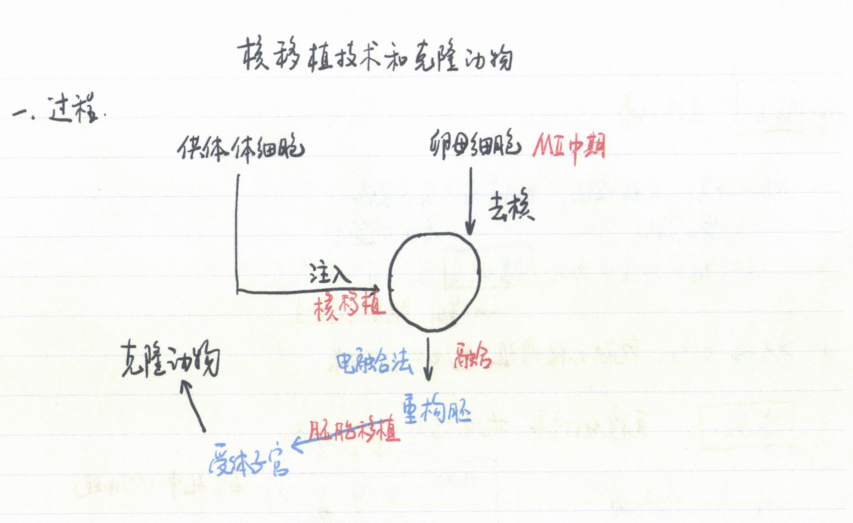 核移植技术和克隆动物
一.过程.
供体体细胞
卵母细胞 MⅡ中期
去核
注入
核移植
克隆动物
电融合法 融合
重构胚
胚胎移植
受体子宫